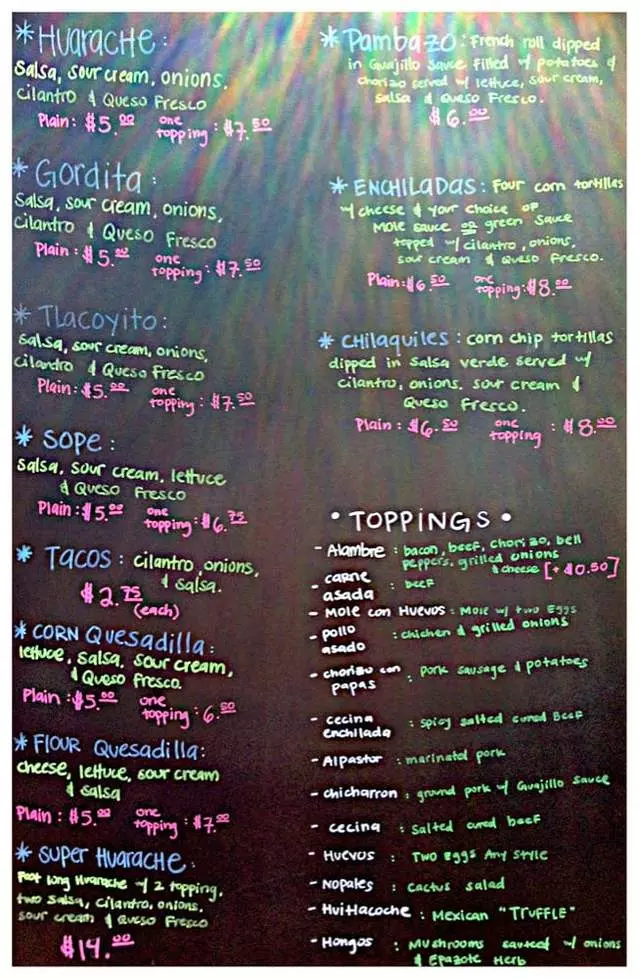 * Huarache:
Salsa, sour cream, onions,
cilantro & Queso Fresco
Plain: $5.00 one topping: $7.50
* Gordita:
Salsa, sour cream, onions,
Cilantro & Queso Fresco
Plain: $5.00 one topping: $7.50
* Tlacoyito:
Salsa, sour cream, onions,
cilantro & Queso Fresco
Plain: $5.00 one topping: $7.50
* SOPE:
Salsa, sour cream, lettuce
& Queso Fresco
Plain: $5.00 one topping: $6.75
* TACOS: cilantro, onions,
& salsa.
$2.75
(each)
* CORN Quesadilla:
lettuce, salsa, sour cream,
& Queso Fresco.
Plain: $5.00 one topping: 6.50
* FLOUR Quesadilla:
cheese, lettuce, sour cream
& salsa
Plain: $5.00 one topping: $7.00
* SUPER HUARACHE:
Foot long Huarache w/ 2 topping,
two salsa, cilantro, onions,
sour cream & Queso Fresco
$14.00
* Pambazo: French roll dipped
in Guajillo sauce filled w/ potatoes &
chorizo served w/ lettuce, sour cream,
salsa & Queso Fresco.
$6.00
* ENCHILADAS: Four corn tortillas
w/ cheese & your choice of
Mole sauce or green sauce
topped w/ cilantro, onions,
sour cream & Queso Fresco.
Plain: $6.50 one topping: $8.00
* CHILAQUILES: corn chip tortillas
dipped in salsa verde served w/
cilantro, onions, sour cream &
Queso Fresco.
Plain: $6.50 one topping: $8.00
• TOPPINGS •
- Alambre: bacon, beef, chorizo, bell
peppers, grilled onions
& cheese [+ $0.50]
- carne asada: beef
- Mole con Huevos: Mole w/ two Eggs
- pollo asado: chicken & grilled onions
- chorizo con papas: Pork sausage & potatoes
- cecina enchilada: spicy salted cured Beef
- Alpastor: marinated pork
- chicharron: ground pork w/ Guajillo Sauce
- cecina: salted cured beef
- HUEVOS: TWO EGGS ANY STYLE
- Nopales: cactus salad
- Huitlacoche: Mexican "TRUFFLE"
- Hongos: Mushrooms sauteed w/ onions
& Epazote Herb